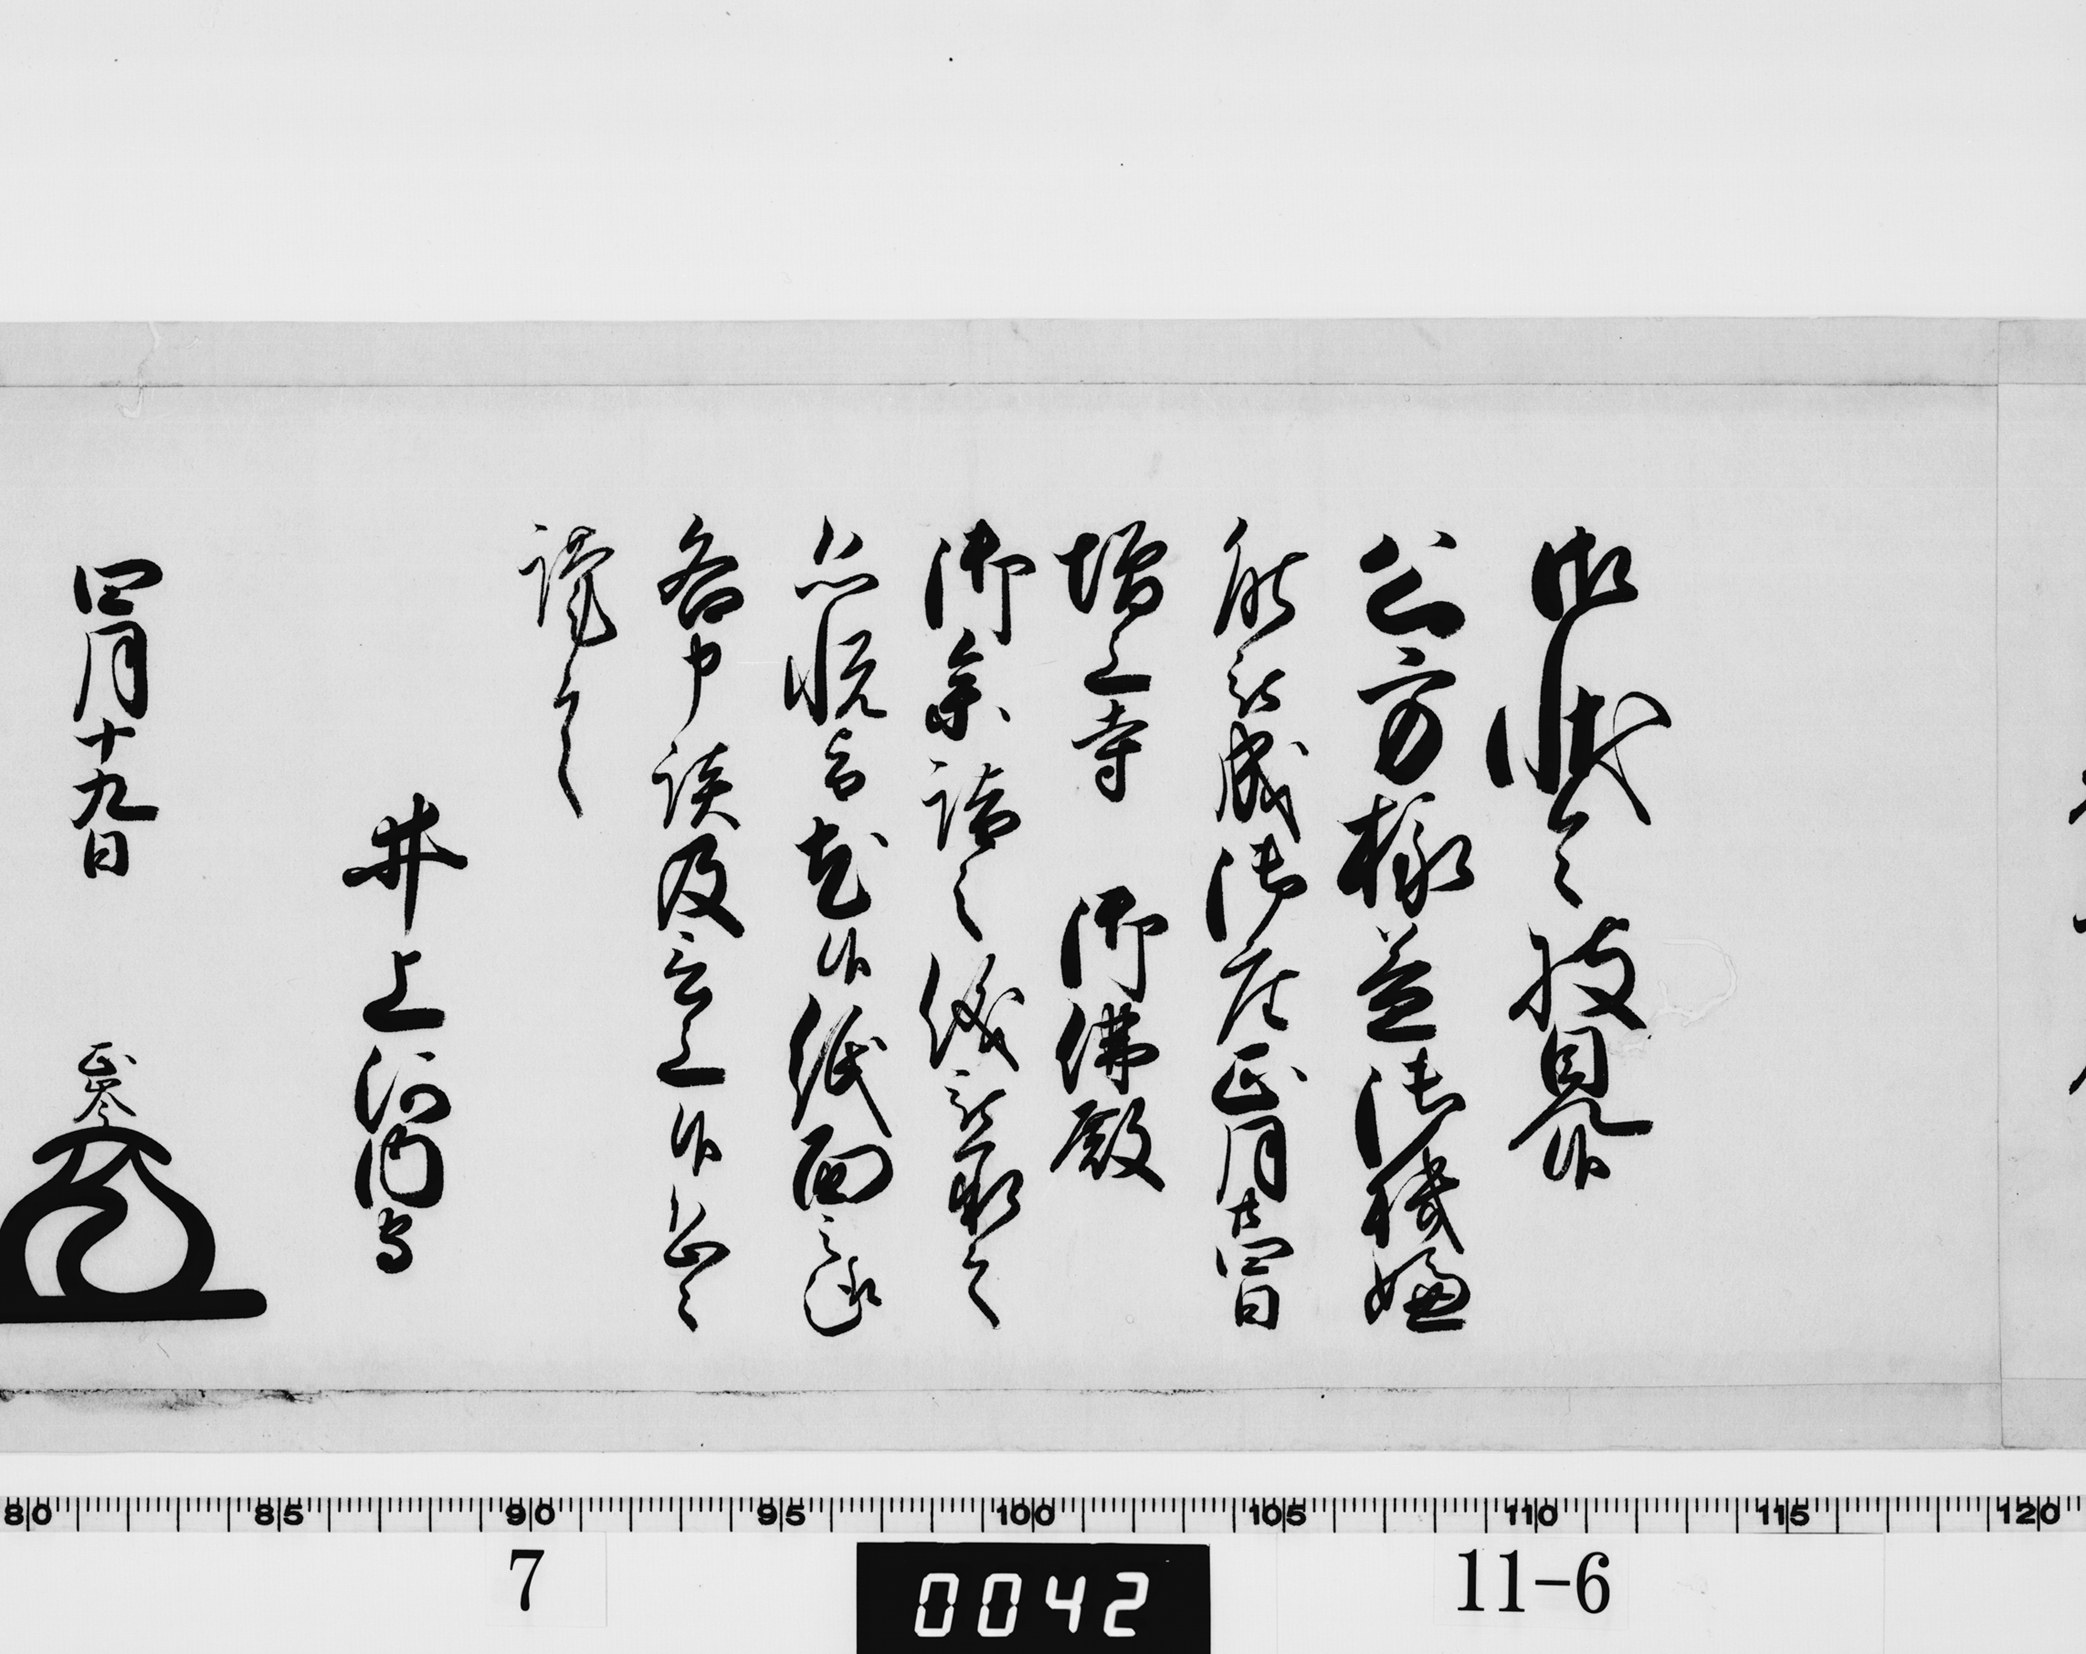 御状令披見候
公方様益御機嫌
能被成御座正月廿四日
増上寺 御佛殿
御参詣之儀被承之
恐悦旨尤候紙面之趣
各申談及言上候恐々
謹言
井上河内守
四月十九日 正岑
80 85 90 95 100 105 110 115 120
7 0042 11-6